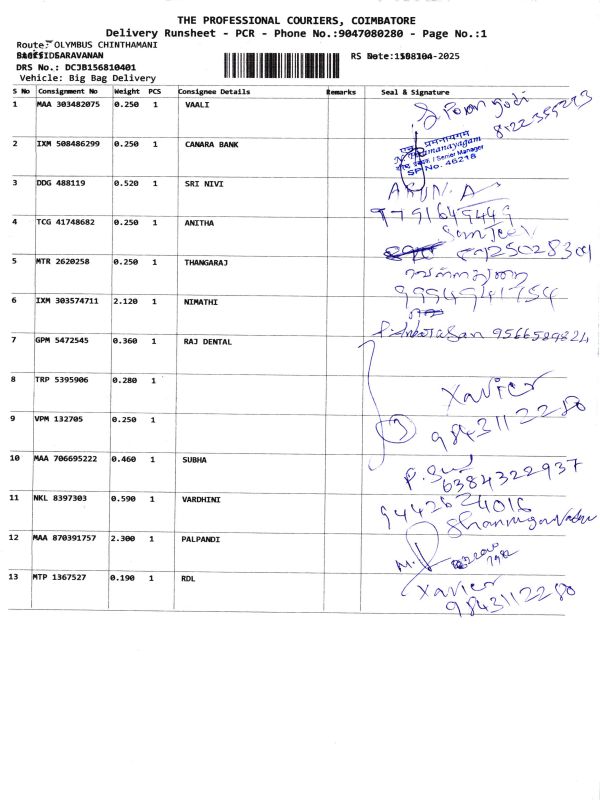 THE PROFESSIONAL COURIERS, COIMBATORE
Delivery Runsheet - PCR - Phone No.:9047080280 - Page No.:1
Route: OLYMBUS CHINTHAMANI
SARAVANAN
RS Date: -2025
DRS No.: DCJB156810401
Vehicle: Big Bag Delivery
S No Consignment No Weight PCS Consignee Details Remarks Seal & Signature
1 MAA 303482075 0.250 1 VAALI
8122355293
2 IXM 508486299 0.250 1 CANARA BANK
एन. प्रमनायगम
/ Senior Manager
SP No. 46218
3 DDG 488119 0.520 1 SRI NIVI ARUN. A
9791649449
4 TCG 41748682 0.250 1 ANITHA
5 MTR 2620258 0.250 1 THANGARAJ
9994941754
6 IXM 303574711 2.120 1 NIMATHI
7 GPM 5472545 0.360 1 RAJ DENTAL 9566589824
8 TRP 5395906 0.280 1 Xavier
9843112280
9 VPM 132705 0.250 1
10 MAA 706695222 0.460 1 SUBHA
6384322937
11 NKL 8397303 0.590 1 VARDHINI 9442624016
12 MAA 870391757 2.300 1 PALPANDI
13 MTP 1367527 0.190 1 RDL Xavier
9843112280